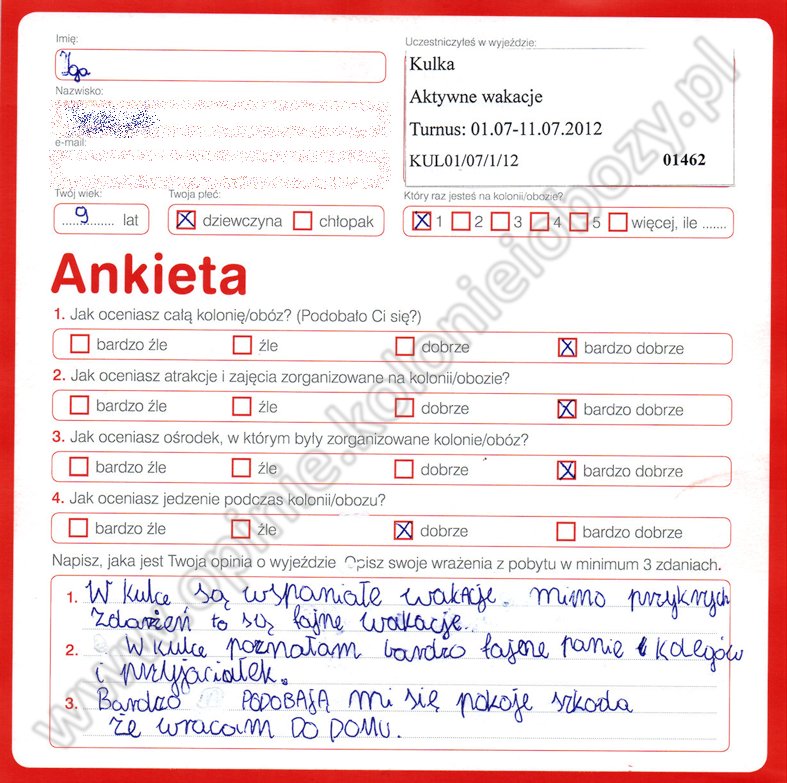 Imię:
Iga
Uczestniczyłeś w wyjeździe:
Kulka
Aktywne wakacje
Turnus: 01.07-11.07.2012
KUL01/07/1/12 01462
Nazwisko:
e-mail:
Twój wiek:
9 lat
Twoja płeć:
dziewczyna chłopak
Który raz jesteś na kolonii/obozie?
1 2 3 4 5 więcej, ile .......
Ankieta
1. Jak oceniasz całą kolonię/obóz? (Podobało Ci się?)
bardzo źle źle dobrze bardzo dobrze
2. Jak oceniasz atrakcje i zajęcia zorganizowane na kolonii/obozie?
bardzo źle źle dobrze bardzo dobrze
3. Jak oceniasz ośrodek, w którym były zorganizowane kolonie/obóz?
bardzo źle źle dobrze bardzo dobrze
4. Jak oceniasz jedzenie podczas kolonii/obozu?
bardzo źle źle dobrze bardzo dobrze
Napisz, jaka jest Twoja opinia o wyjeździe Opisz swoje wrażenia z pobytu w minimum 3 zdaniach.
1. W Kulce są wspaniałe wakacje. mimo przykrych
zdarzeń to są fajne wakacje.
2. W kulce poznałam bardzo fajene panie kolegów
i przyjaciałek.
3. Bardzo PODOBAJĄ mi się pokoje szkoda
że wracam DO DOMU.
www.opinie.kolonieiobozy.pl